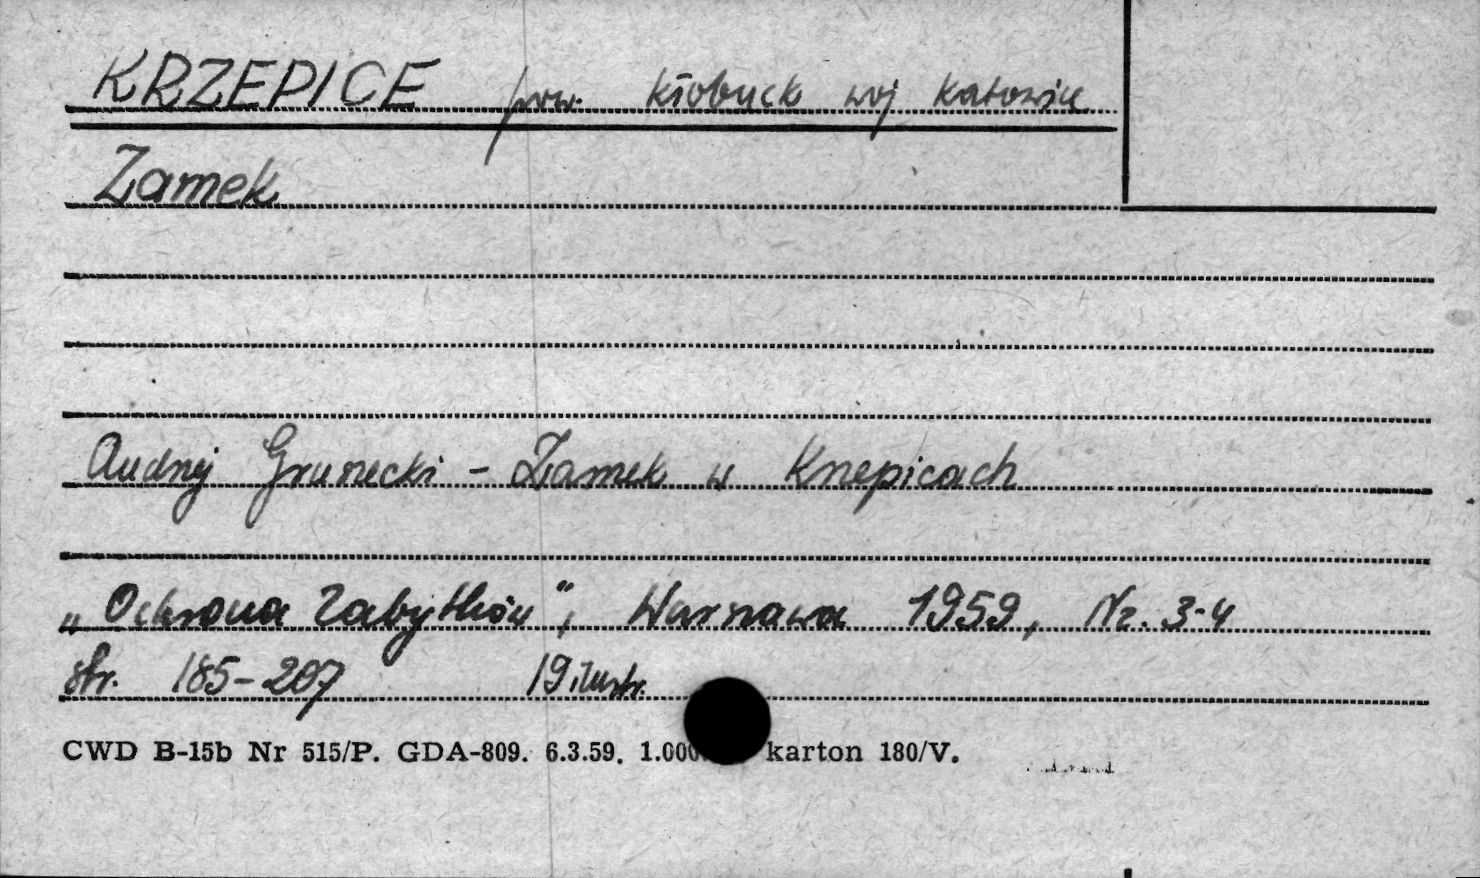 KRZEPICE pow. Kłobuck woj Katowice
Zamek
Andrzej Gruszecki - Zamek w Krzepicach
„Ochrona Zabytków", Warszawa 1959, Nr. 3-4
str. 185-207 19 ilustr.
CWD B-15b Nr 515/P. GDA-809. 6.3.59. 1.000 karton 180/V.